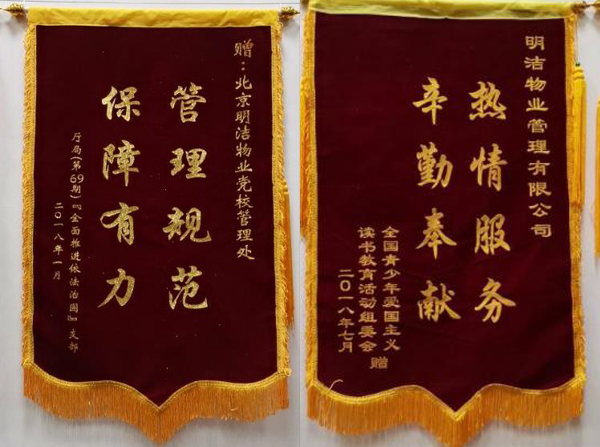 赠：北京明洁物业党校管理处
管理规范
保障有力
厅局(第69期)『全面推进依法治国』支部
二〇一八年一月
明洁物业管理有限公司
热情服务
辛勤奉献
全国青少年爱国主义
读书教育活动组委会 赠
二〇一八年七月